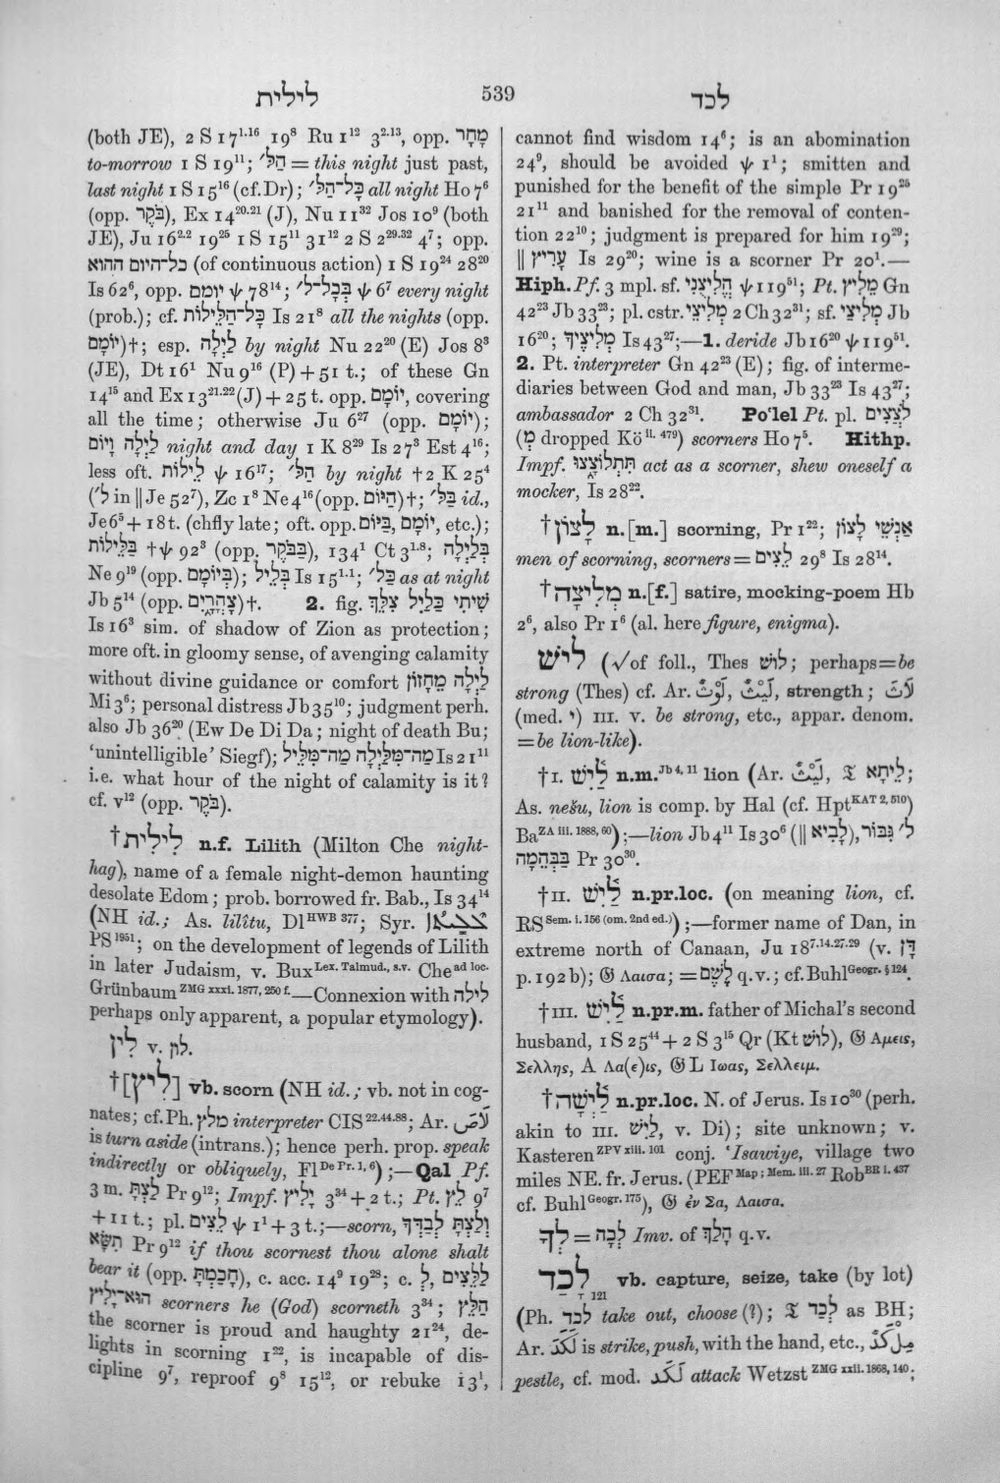 לילית 539 לכד
(both JE), 2 S 17¹·¹⁶ 19⁸ Ru 1¹² 3²·¹³, opp. מָחָר
to-morrow 1 S 19¹¹; הַלּ׳ = this night just past,
last night 1 S 15¹⁶ (cf. Dr); כָּל־הַלּ׳ all night Ho 7⁶
(opp. בֹּקֶר), Ex 14²⁰·²¹ (J), Nu 11³² Jos 10⁹ (both
JE), Ju 16²·² 19²⁵ 1 S 15¹¹ 31¹² 2 S 2²⁹·³² 4⁷; opp.
כל־היום ההוא (of continuous action) 1 S 19²⁴ 28²⁰
Is 62⁶, opp. יומם ψ 78¹⁴; בְּכָל־ל׳ ψ 6⁷ every night
(prob.); cf. כָּל־הַלֵּילוֹת Is 21⁸ all the nights (opp.
יוֹמָם)†; esp. לַיְלָה by night Nu 22²⁰ (E) Jos 8³
(JE), Dt 16¹ Nu 9¹⁶ (P) + 51 t.; of these Gn
14¹⁵ and Ex 13²¹·²² (J) + 25 t. opp. יוֹמָם, covering
all the time; otherwise Ju 6²⁷ (opp. יוֹמָם);
לַיְלָה וָיוֹם night and day 1 K 8²⁹ Is 27³ Est 4¹⁶;
less oft. לֵילוֹת ψ 16¹⁷; הַלּ׳ by night †2 K 25⁴
(ל׳ in ‖ Je 52⁷), Zc 1⁸ Ne 4¹⁶ (opp. הַיּוֹם)†; בַּלּ׳ id.,
Je 6⁵ + 18 t. (chfly late; oft. opp. בַּיּוֹם, יוֹמָם, etc.);
בַּלֵּילוֹת †ψ 92³ (opp. בַּבֹּקֶר), 134¹ Ct 3¹·⁸; בְּלַיְלָה
Ne 9¹⁹ (opp. בְּיוֹמָם); בְּלֵיל Is 15¹·¹; כַּלּ׳ as at night
Jb 5¹⁴ (opp. צָהֳרָיִם)†. 2. fig. שִׁיתִי כַלַּיִל צִלֵּךְ
Is 16³ sim. of shadow of Zion as protection;
more oft. in gloomy sense, of avenging calamity
without divine guidance or comfort לַיְלָה מֵחָזוֹן
Mi 3⁶; personal distress Jb 35¹⁰; judgment perh.
also Jb 36²⁰ (Ew De Di Da; night of death Bu;
‘unintelligible’ Siegf); מַה־מִּלַּיְלָה מַה־מִּלֵּיל Is 21¹¹
i.e. what hour of the night of calamity is it?
cf. v¹² (opp. בֹּקֶר).
†לִילִית n.f. Lilith (Milton Che night-
hag), name of a female night-demon haunting
desolate Edom; prob. borrowed fr. Bab., Is 34¹⁴
(NH id.; As. lilîtu, Dl HWB 377; Syr.
PS 1951; on the development of legends of Lilith
in later Judaism, v. Bux Lex. Talmud., s.v. Che ad loc.
Grünbaum ZMG xxxi. 1877, 250 f.—Connexion with לילה
perhaps only apparent, a popular etymology).
לִין v. לון.
†[לִיץ] vb. scorn (NH id.; vb. not in cog-
nates; cf. Ph. מלץ interpreter CIS 22.44.88; Ar. لَاصَ
is turn aside (intrans.); hence perh. prop. speak
indirectly or obliquely, Fl De Pr. 1, 6);—Qal Pf.
3 m. לָץ Pr 9¹²; Impf. יָלִיץ 3³⁴ + 2 t.; Pt. לֵץ 9⁷
+ 11 t.; pl. לֵצִים ψ 1¹ + 3 t.;—scorn, וְלַצְתָּ לְבַדְּךָ
תִשָּׂא Pr 9¹² if thou scornest thou alone shalt
bear it (opp. חָכַמְתָּ), c. acc. 14⁹ 19²⁸; c. לְ, לַלֵּצִים
הוּא־יָלִיץ scorners he (God) scorneth 3³⁴; הַלֵּץ
the scorner is proud and haughty 21²⁴, de-
lights in scorning 1²², is incapable of dis-
cipline 9⁷, reproof 9⁸ 15¹², or rebuke 13¹,
cannot find wisdom 14⁶; is an abomination
24⁹, should be avoided ψ 1¹; smitten and
punished for the benefit of the simple Pr 19²⁵
21¹¹ and banished for the removal of conten-
tion 22¹⁰; judgment is prepared for him 19²⁹;
‖ עָרִיץ Is 29²⁰; wine is a scorner Pr 20¹.—
Hiph. Pf. 3 mpl. sf. הֱלִיצֻנִי ψ 119⁵¹; Pt. מֵלִיץ Gn
42²³ Jb 33²³; pl. cstr. מְלִיצֵי 2 Ch 32³¹; sf. מְלִיצַי Jb
16²⁰; מְלִיצֶיךָ Is 43²⁷;—1. deride Jb 16²⁰ ψ 119⁵¹.
2. Pt. interpreter Gn 42²³ (E); fig. of interme-
diaries between God and man, Jb 33²³ Is 43²⁷;
ambassador 2 Ch 32³¹. Po‘lel Pt. pl. לֹצְצִים
(מְ dropped Kö ii. 479) scorners Ho 7⁵. Hithp.
Impf. תִּתְלוֹצָצוּ act as a scorner, shew oneself a
mocker, Is 28²².
†לָצוֹן n.[m.] scorning, Pr 1²²; אַנְשֵׁי לָצוֹן
men of scorning, scorners = לֵצִים 29⁸ Is 28¹⁴.
†מְלִיצָה n.[f.] satire, mocking-poem Hb
2⁶, also Pr 1⁶ (al. here figure, enigma).
ליש (√of foll., Thes לוש; perhaps=be
strong (Thes) cf. Ar. لَوْثٌ, لَيْثٌ, strength; لَاثَ
(med. י) III. v. be strong, etc., appar. denom.
=be lion-like).
†I. לַיִשׁ n.m. Jb 4, 11 lion (Ar. لَيْثٌ, 𝔗 לֵיתָא;
As. nešu, lion is comp. by Hal (cf. Hpt KAT 2, 510)
Ba ZA iii. 1888, 60);—lion Jb 4¹¹ Is 30⁶ (‖ לָבִיא), ל׳ גִּבּוֹר
בַּבְּהֵמָה Pr 30³⁰.
†II. לַיִשׁ n.pr.loc. (on meaning lion, cf.
RS Sem. i. 156 (om. 2nd ed.));—former name of Dan, in
extreme north of Canaan, Ju 18⁷·¹⁴·²⁷·²⁹ (v. דָּן
p. 192 b); 𝔊 Λαισα; = לֶשֶׁם q.v.; cf. Buhl Geogr. § 124.
†III. לַיִשׁ n.pr.m. father of Michal's second
husband, 1 S 25⁴⁴ + 2 S 3¹⁵ Qr (Kt לוש), 𝔊 Αμεις,
Σελλης, A Λα(ε)ις, 𝔊 L Ιωας, Σελλειμ.
†לַיְשָׁה n.pr.loc. N. of Jerus. Is 10³⁰ (perh.
akin to III. לַיִשׁ, v. Di); site unknown; v.
Kasteren ZPV xiii. 101 conj. ‘Isawiye, village two
miles NE. fr. Jerus. (PEF Map; Mem. iii. 27 Rob BR i. 437
cf. Buhl Geogr. 175), 𝔊 ἐν Σα, Λαισα.
לֵךְ = לְכָה Imv. of הָלַךְ q.v.
לָכַד 121 vb. capture, seize, take (by lot)
(Ph. לכד take out, choose (?); 𝔗 לְכַד as BH;
Ar. لَكَدَ is strike, push, with the hand, etc., مِلْكَدٌ
pestle, cf. mod. لكد attack Wetzst ZMG xxii. 1868, 140;